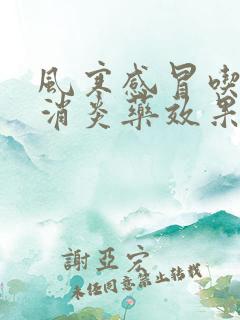 风寒感冒喫
消炎药效果
謝亞宏
未经同意禁止转载